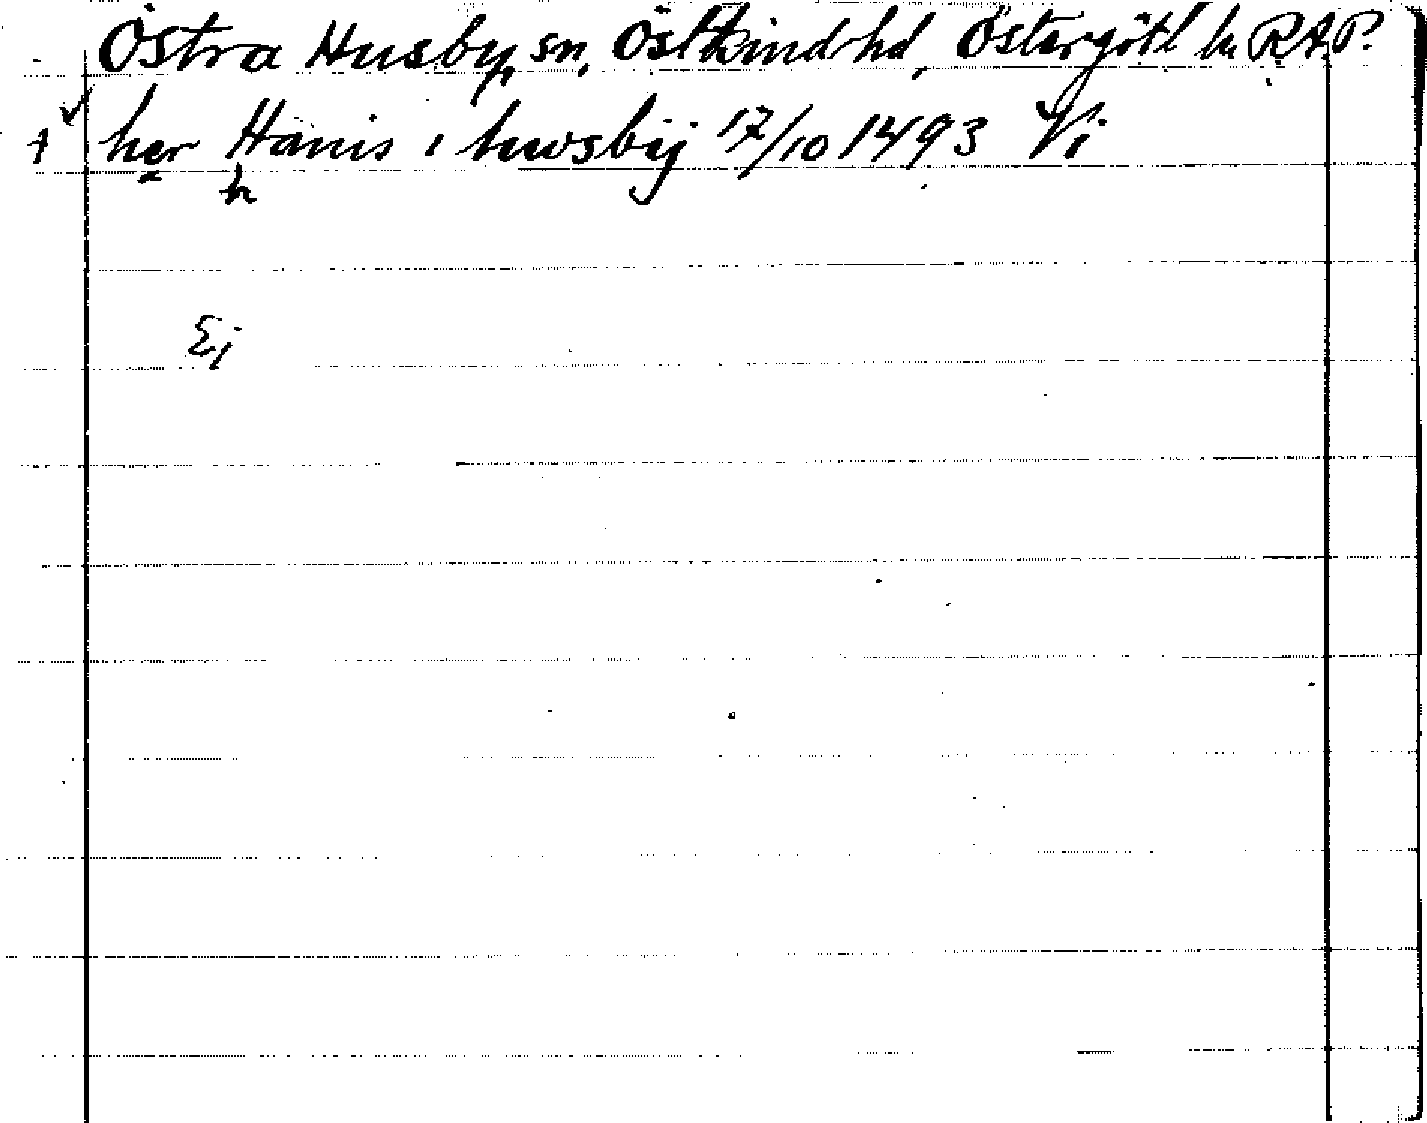 Östra Husby, sn, Östkind hd, Östergötl ln RAP?
+ her Hanis i huwsbij 17/10 1493 Vi
h
Ej